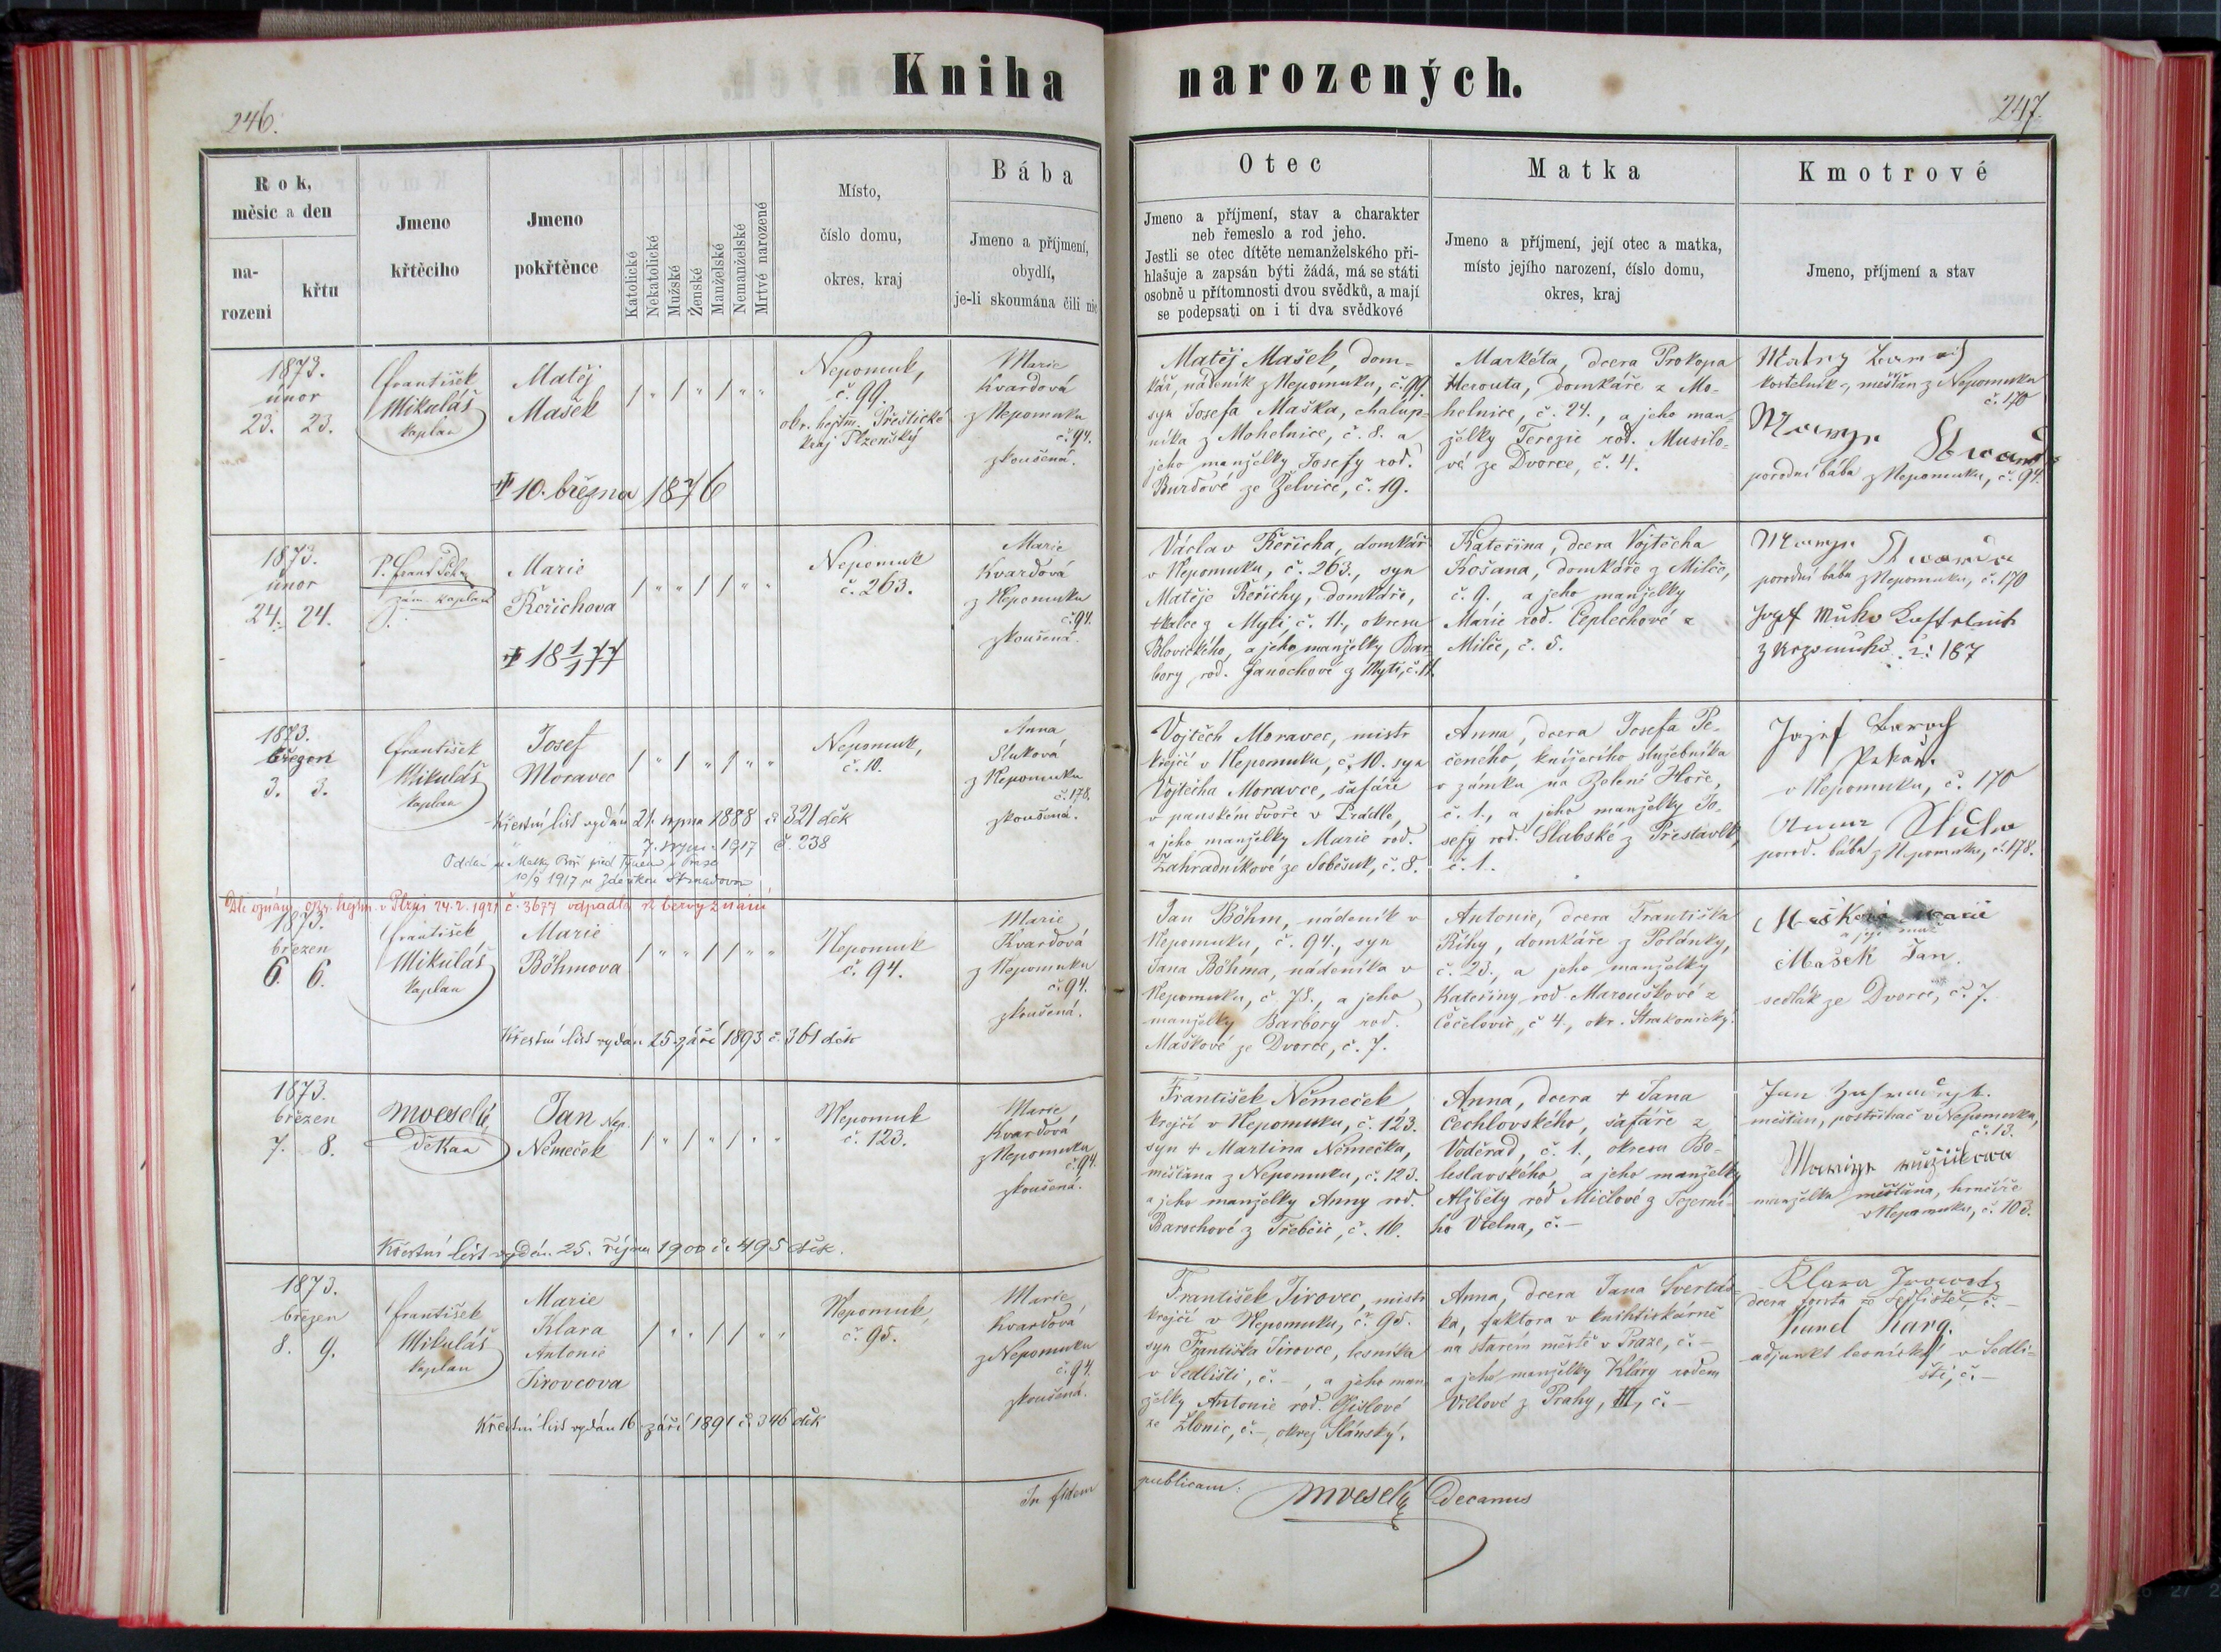 Kniha narozených.
246.
247.
Rok,
měsíc a den
na-
rození
křtu
Jmeno
křtěcího
Jmeno
pokřtěnce
Katolické
Nekatolické
Mužské
Ženské
Manželské
Nemanželské
Mrtvé narozené
Místo,
číslo domu,
okres, kraj
Bába
Jmeno a příjmení,
obydlí,
je-li skoumána čili nic
Otec
Jmeno a příjmení, stav a charakter
neb řemeslo a rod jeho.
Jestli se otec dítěte nemanželského při-
hlašuje a zapsán býti žádá, má se státi
osobně u přítomnosti dvou svědků, a mají
se podepsati on i ti dva svědkové
Matka
Jmeno a příjmení, její otec a matka,
místo jejího narození, číslo domu,
okres, kraj
Kmotrové
Jmeno, příjmení a stav
1873.
únor
23. 23.
František
Mikuláš
kaplan
Matěj
Mašek
10. března 1876
Nepomuk,
č. 99.
okr. hejtm. Přeštické
kraj Plzeňský
Marie
Kvardová
z Nepomuka
č. 94.
zkoušená.
Matěj Mašek, dom-
kář, nádeník z Nepomuku, č. 99.
syn Josefa Maška, chalup-
níka z Mohelnice, č. 8. a
jeho manželky Josefy rod.
Burdové ze Želvice, č. 19.
Markéta, dcera Prokopa
Herouta, domkáře z Mo-
helnice, č. 24., a jeho man-
želky Terezie rod. Musilo-
vé ze Dvorce, č. 4.
kostelník, měšťan z Nepomuka
č. 170
porodní bába z Nepomuku, č. 94.
1873.
únor
24. 24.
P. Frant.
zám. kaplan
Marie
Řeřichova
18 1/1 77
Nepomuk
č. 263.
Marie
Kvardová
z Nepomuku
č. 94.
zkoušená.
Václav Řeřicha, domkář
v Nepomuku, č. 263., syn
Matěje Řeřichy, domkáře,
tkalce z Mýti č. 11., okresu
Blovického, a jeho manželky Bar-
bory rod. Janochové z Mýti, č. 11.
Kateřina, dcera Vojtěcha
Košana, domkáře z Milče,
č. 9., a jeho manželky
Marie rod. Ceplechové z
Milče, č. 5.
porodní bába z Nepomuku, č. 170
č: 187
1873.
březen
3. 3.
František
Mikuláš
kaplan
Josef
Moravec
Křestní list vydán 21. srpna 1888 č 321 děk
7. srpna 1917 č. 238
Oddán u Matky Boží před Týnem v Praze
10/9 1917 se Zdeňkou Strnadovou
Nepomuk,
č. 10.
Anna
Sluková
z Nepomuku
č. 178.
zkoušená.
Vojtěch Moravec, mistr
krejčí v Nepomuku, č. 10. syn
Vojtěcha Moravce, šafáře
v panském dvoře v Prádle,
a jeho manželky Marie rod.
Zahradníkové ze Soběsuk, č. 8.
Anna, dcera Josefa Pe-
čeného, knížecího služebníka
v zámku na Zelené Hoře,
č. 1., a jeho manželky Jo-
sefy rod. Slabské z Přestavlk,
č. 1.
Josef Baroch
Pekař.
v Nepomuku, č. 170
porod. bába z Nepomuku, č. 178.
Dle oznám. okr. hejtm. v Plzni 24.2.1921 č. 3677 odpadla z bezvyznání
1873.
březen
6. 6.
František
Mikuláš
kaplan
Marie
Böhmova
Křestní list vydán 25 září 1893 č. 361 děk
Nepomuk
č. 94.
Marie
Kvardová
z Nepomuku
č. 94.
zkoušená.
Jan Böhm, nádeník v
Nepomuku, č. 94., syn
Jana Böhma, nádeníka v
Nepomuku, č. 78., a jeho
manželky Barbory rod.
Maškové ze Dvorce, č. 7.
Antonie, dcera Františka
Říhy, domkáře z Polánky,
č. 23., a jeho manželky
Kateřiny rod. Marouškové z
Čečelovic, č 4., okr. Strakonický.
Mašková Marie
Mašek Jan.
sedlák ze Dvorce, č. 7.
1873.
březen
7. 8.
MVeselý
děkan
Jan Nep.
Němeček
Křestní list vydán 25. října 1900 č. 495 děk.
Nepomuk
č. 123.
Marie
Kvardová
z Nepomuku
č. 94.
zkoušená.
František Němeček
krejčí v Nepomuku, č. 123.
syn + Martina Němečka,
měšťana z Nepomuku, č. 123.
a jeho manželky Anny rod.
Barochové z Třebčic, č. 16.
Anna, dcera + Jana
Čechlovského, šafáře z
Voděrad, č. 1., okresu Bo-
leslavského, a jeho manželky
Alžběty rod Mičlové z Jezerní-
ho Vtelna, č. –
měšťan, postřihač v Nepomuku,
č. 13.
manželka měšťana, hrnčíře
v Nepomuku, č. 103.
1873.
březen
8. 9.
František
Mikuláš
kaplan
Marie
Klara
Antonie
Jirovcova
Křestní list vydán 16 září 1891 č. 346 děk
Nepomuk,
č. 95.
Marie
Kvardová
z Nepomuku
č. 94.
zkoušená.
František Jirovec, mistr
krejčí v Nepomuku, č. 95.
syn Františka Jirovce, lesníka
v Sedlišti, č. –, a jeho man-
želky Antonie rod. Gislové
ze Zlonic, č. –, okres Slánský.
Anna, dcera Jana Sverťás-
ka, faktora v knihtiskárně
na starém městě v Praze, č. –
a jeho manželky Kláry rodem
z Prahy, III, č. –
Klara
dcera ze Sedliště, č. –
Karel Karg.
adjunkt lesnický v Sedli-
šti, č. –
In fidem
publicam: MVeselý Decanus